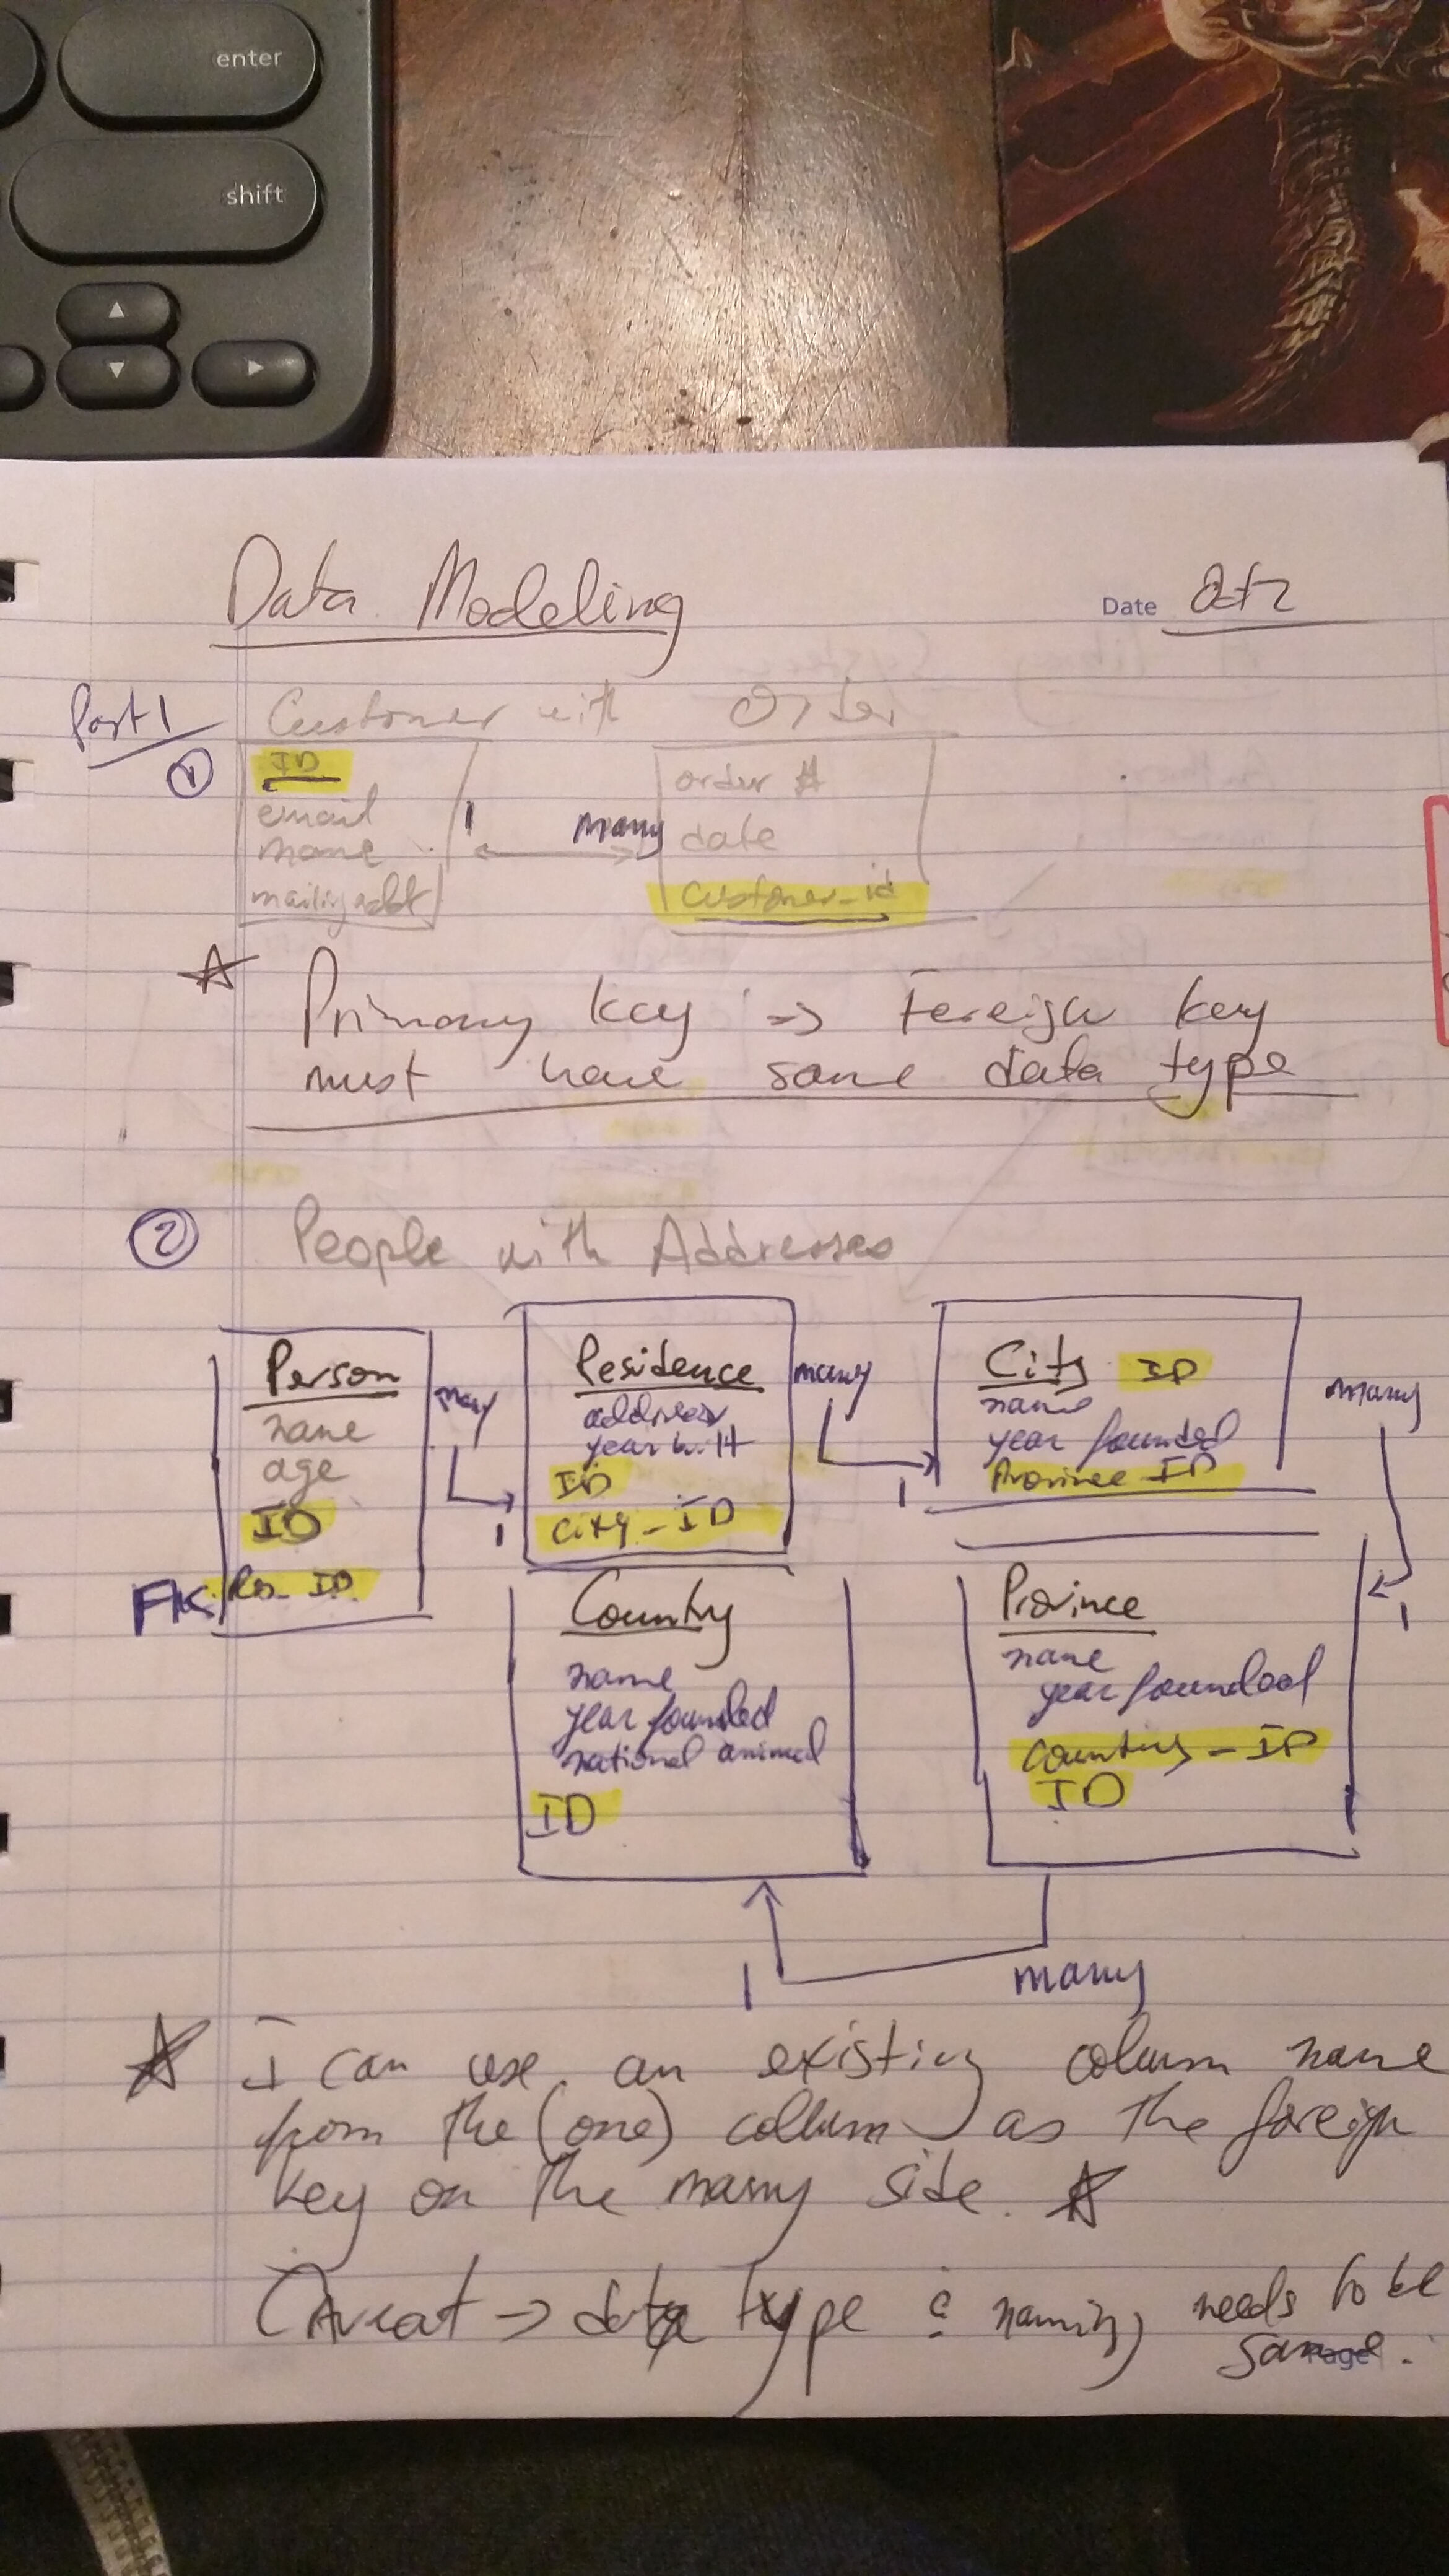 enter
shift
▲
▼
►
Data Modeling
Date Oct 2
Part 1
① Customer with Order
ID
email
name
mailing
1
Many
order #
date
customer_id
☆ Primary key => Foreign key
must have same data type
② People with Addresses
Person
name
age
ID
FK Res_ID
many
1
Residence
address
year built
ID
City_ID
many
1
City ID
name
year founded
Province ID
many
1
Country
name
year founded
national animal
ID
Province
name
year founded
country_ID
ID
1
many
☆ I can use an existing column name
from the (one) column as the foreign
key on the many side. ☆
Caveat -> data type & naming needs to be
same.
Page